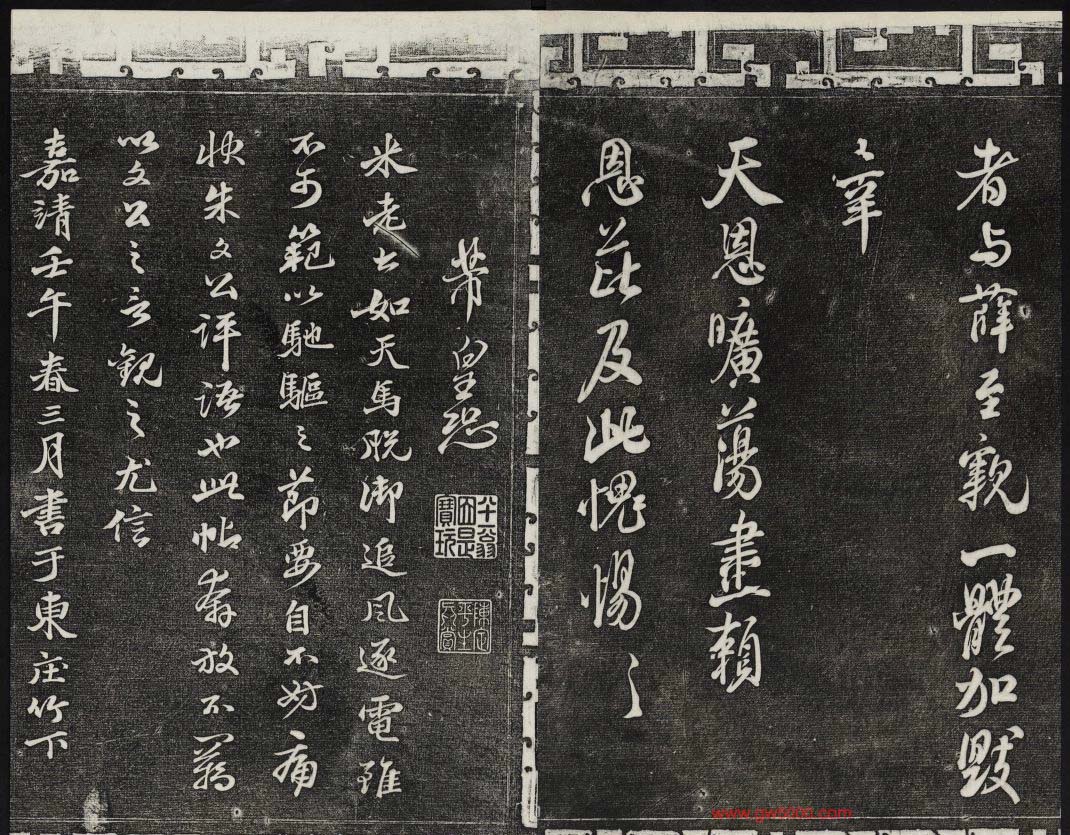 者与薛至親一體加毀
幸
天恩曠蕩盡賴
恩茈及此愧惕〻
芾皇恐
米老書如天馬脱御追風逐電雖
不可範以馳驅之節要自不妨痛
快朱文公評語也此帖奔放不羈
以文公之言觀之尤信
嘉靖壬午春三月書于東庄竹下
www.gwf001.com